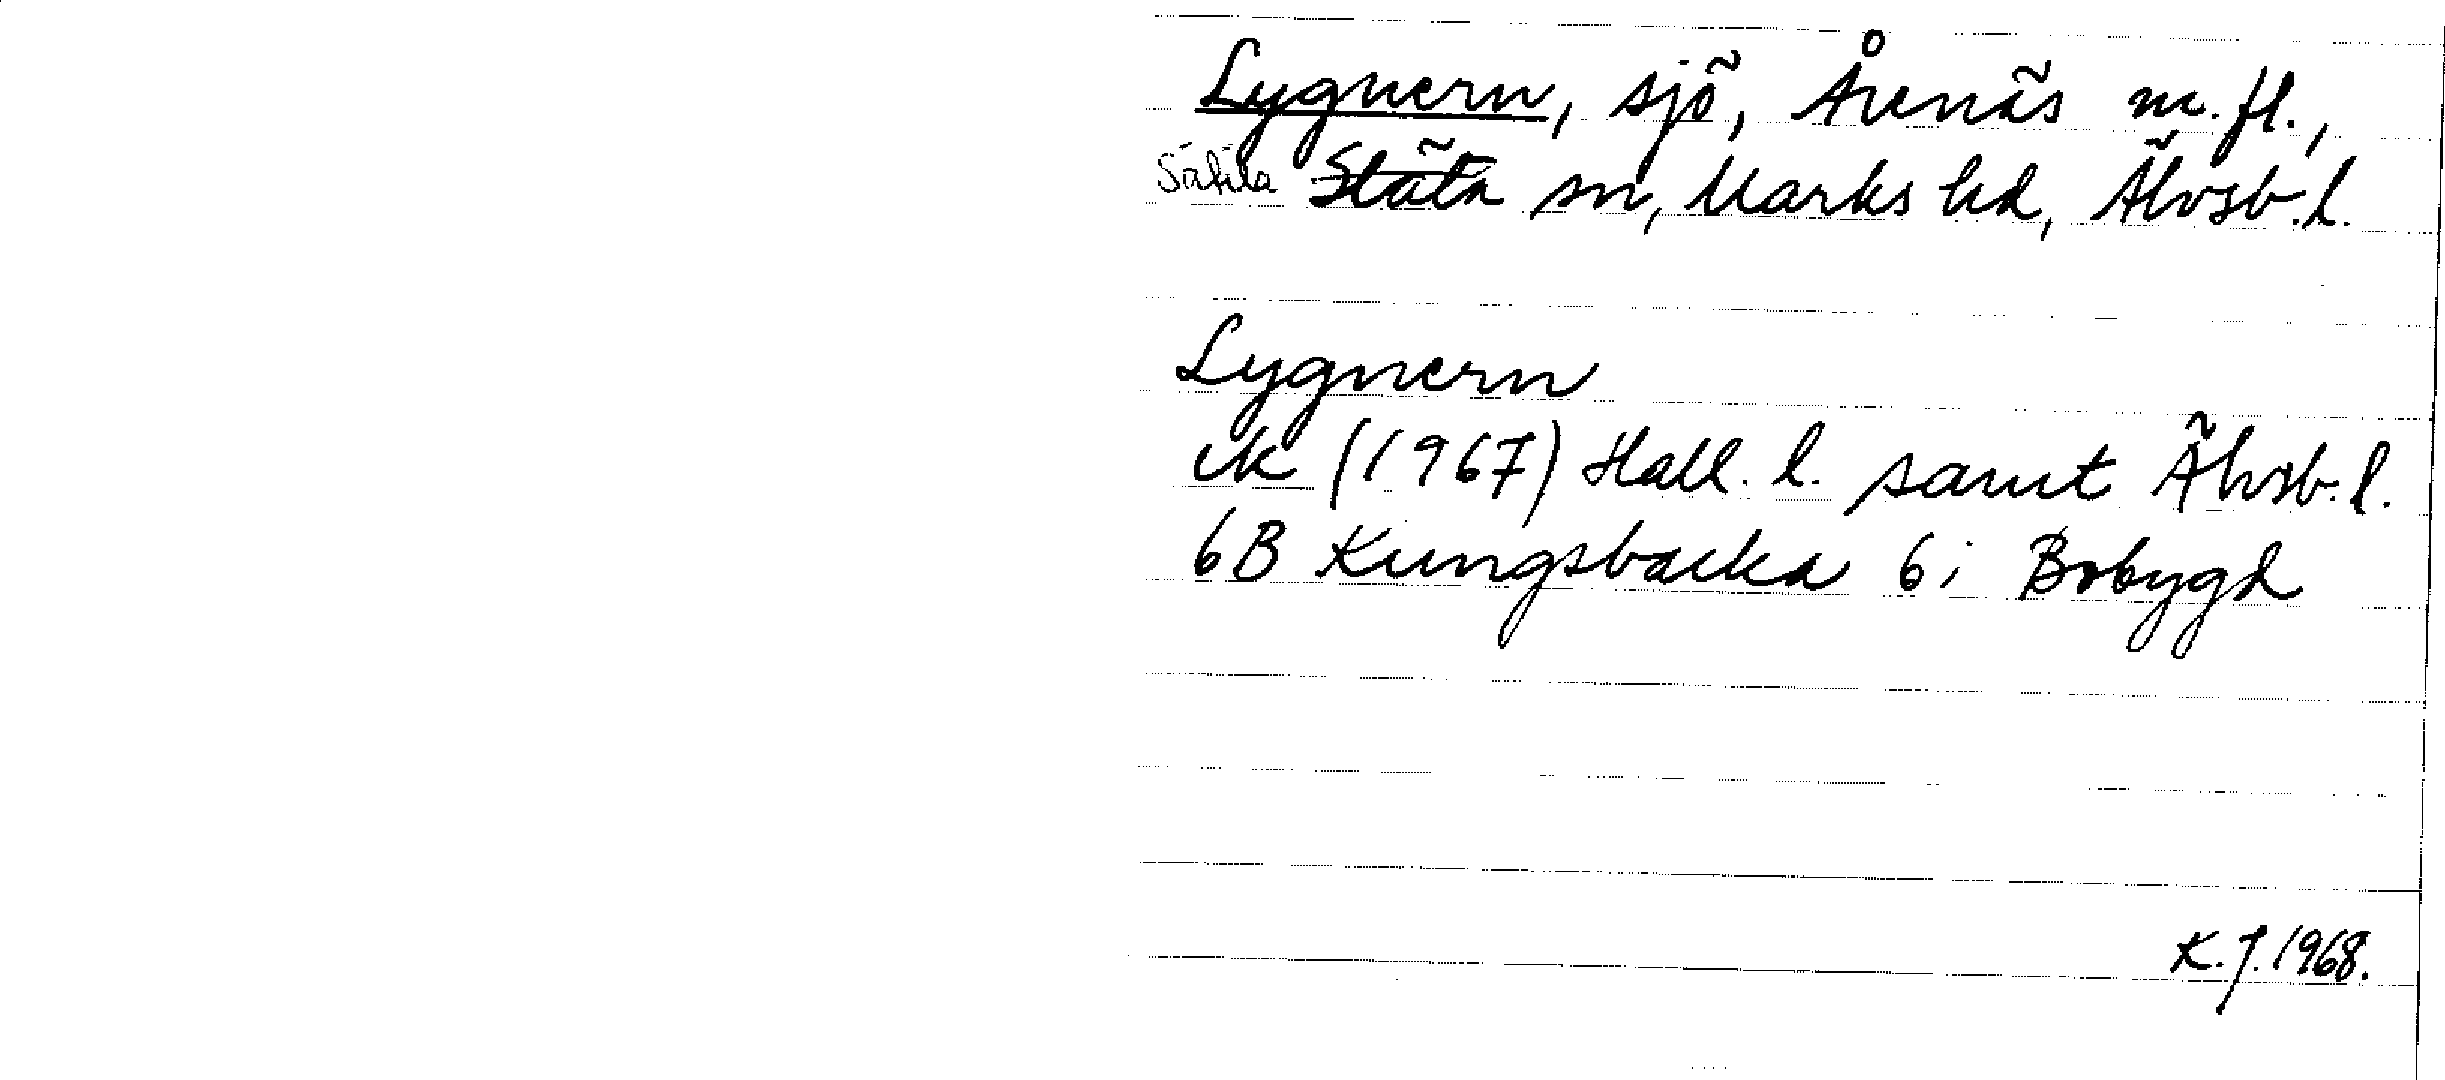 Lygnern, sjö, Årenäs m.fl.,
Sätila Släta sn, Marks hd, Älvsb.l.
Lygnern
ek (1967) Hall. l. samt Älvsb. l.
6B Kungsbacka 6i Bobygd
K.J. 1968.